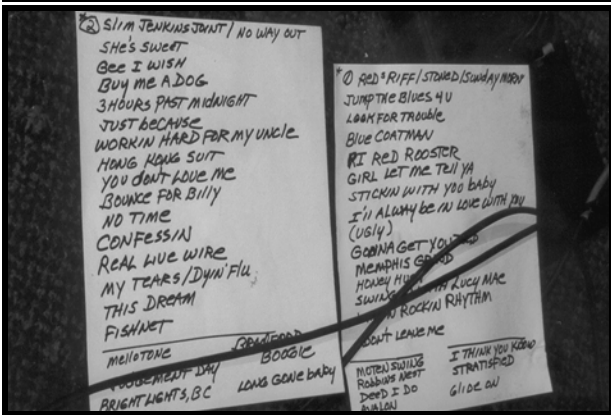 ② SLIM JENKINS JOINT / NO WAY OUT
SHE'S SWEET
GEE I WISH
BUY ME A DOG
3 HOURS PAST MIDNIGHT
JUST BECAUSE
WORKIN HARD FOR MY UNCLE
HONG KONG SUIT
YOU DON'T LOVE ME
BOUNCE FOR BILLY
NO TIME
CONFESSIN
REAL LIVE WIRE
MY TEARS / DYIN' FLU
THIS DREAM
FISHNET
MELLOTONE
BOOGIE
DAY
BRIGHT LIGHTS, BC LONG GONE BABY
① RED'S RIFF / STONED / SUNDAY MORN
JUMP THE BLUES 4 U
LOOK FOR TROUBLE
BLUE COATMAN
RI RED ROOSTER
GIRL LET ME TELL YA
STICKIN WITH YOU BABY
I'll ALWAY BE IN LOVE WITH YOU
(UGLY)
GONNA GET YOU
MEMPHIS
HONEY
LUCY MAE
ROCKIN RHYTHM
DON'T LEAVE ME
MOTEN SWING I THINK YOU KNOW
ROBBINS NEST STRATISFIED
DEED I DO GLIDE ON
AVALON